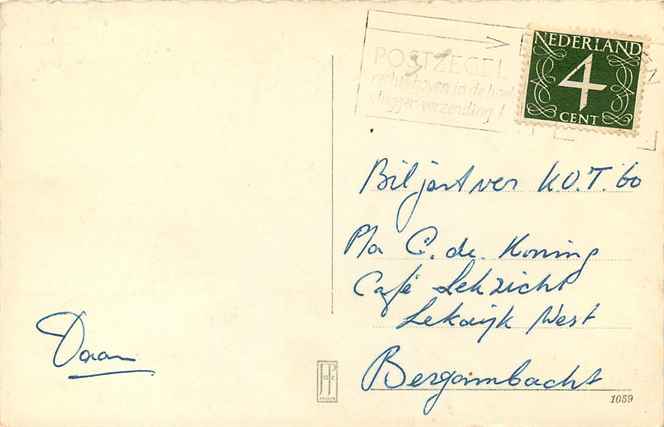 POSTZEGEL
rechtsboven in de hoek
vlugger verzending!
NEDERLAND
4
CENT
Biljartver K.O.T. 60
P/a C. de Koning
Café Lekzicht
Lekdijk West
Bergambacht
Daan
1059